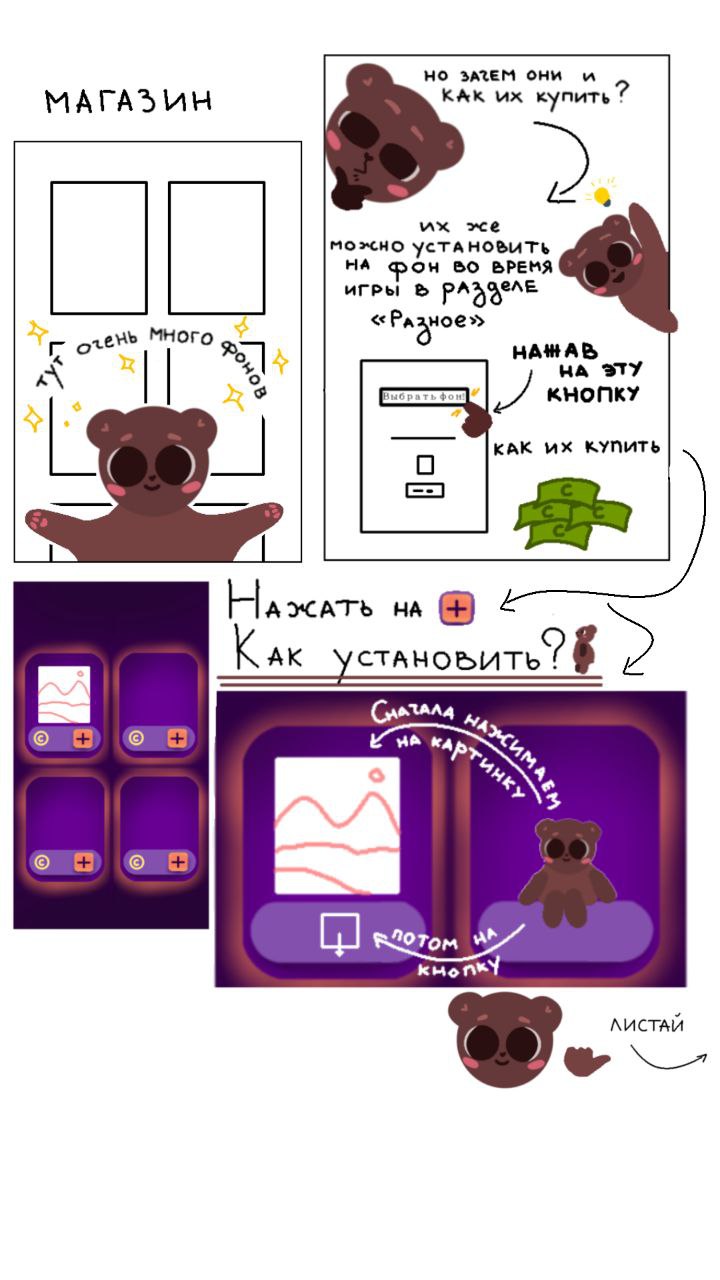 МАГАЗИН
тут очень много фонов
но зачем они и
как их купить?
их же
можно установить
на фон во время
игры в разделе
«Разное»
Выбрать фон!
нажав
на эту
кнопку
как их купить
С
С С
С
Нажать на +
Как установить?
© + © +
© + © +
Сначала нажимаем
на картинку
потом на
кнопку
листай